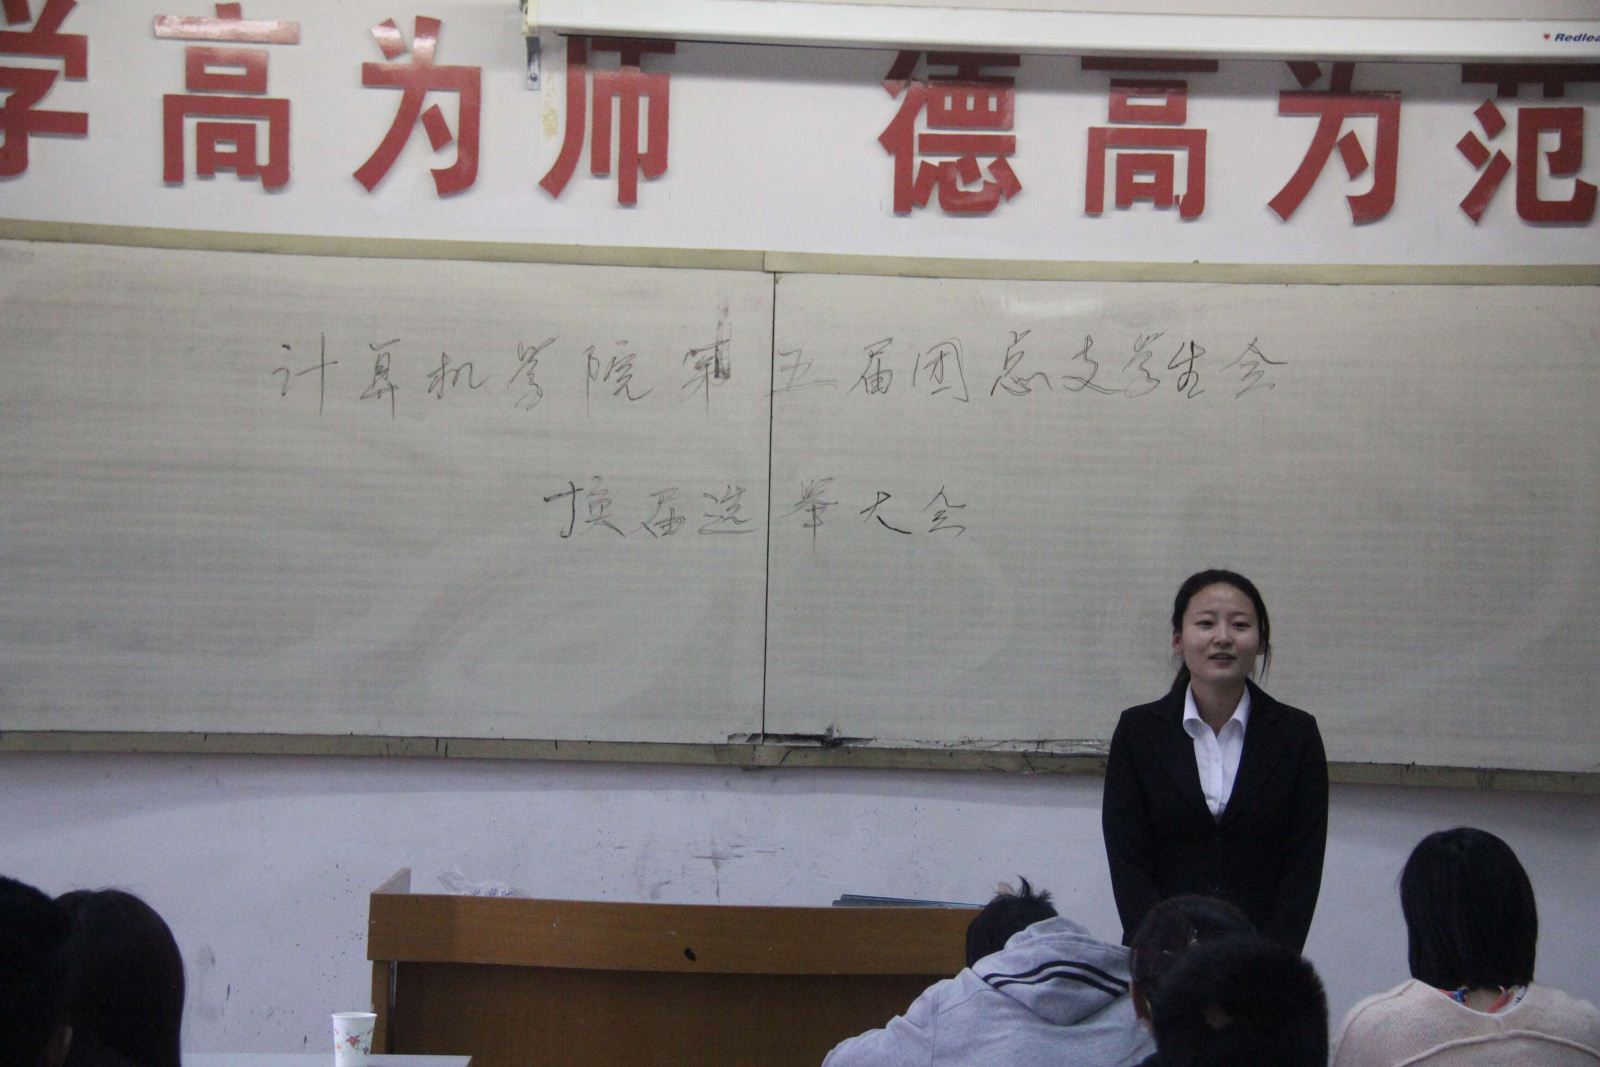 Redlea
学高为师 德高为范
计算机学院第五届团总支学生会
换届选举大会